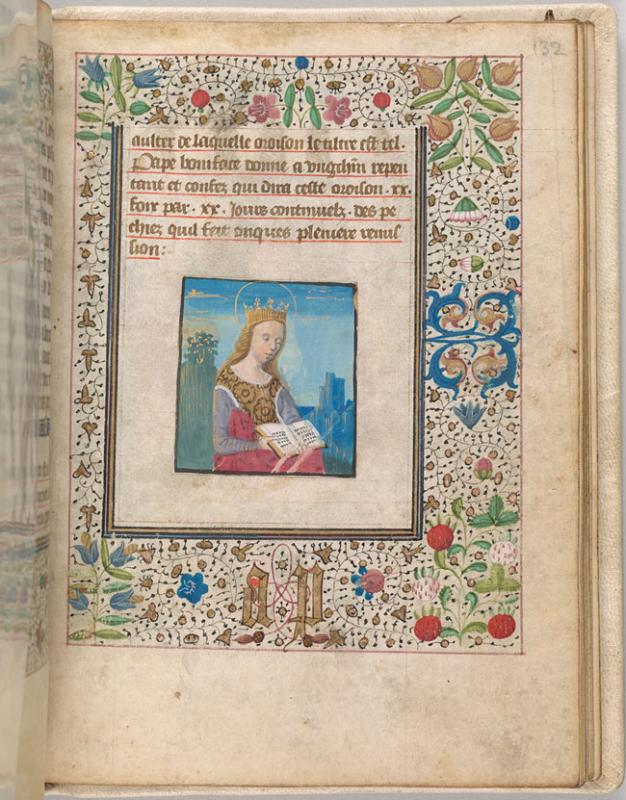 132
aultre de laquelle oroison le tiltre est tel.
Pape boniface donne a vng chūn repen
tant et confez qui dira ceste oroison .xx.
foix par .xx. Jours continuelz . des pe
chiez quil feit onques pleniere remis
sion :
a p